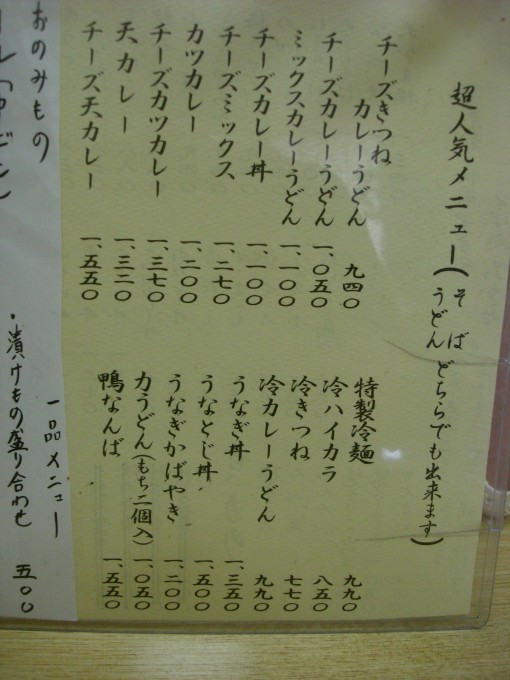 超人気メニュー(そば うどん どちらでも出来ます)
チーズきつね
カレーうどん 九四〇
チーズカレーうどん 一、〇五〇
ミックスカレーうどん 一、一〇〇
チーズカレー丼 一、一〇〇
チーズミックス 一、二七〇
カツカレー 一、二〇〇
チーズカツカレー 一、三七〇
天カレー 一、三二〇
チーズ天カレー 一、五五〇
特製冷麺 九九〇
冷ハイカラ 八五〇
冷きつね 七七〇
冷カレーうどん 九九〇
うなぎ丼 一、三五〇
うなとじ丼 一、五〇〇
うなぎかばやき 一、二〇〇
力うどん(もち二個入) 一、〇五〇
鴨なんば 一、五五〇
一品メニュー
・漬けもの盛り合わせ 五〇〇
おのみもの